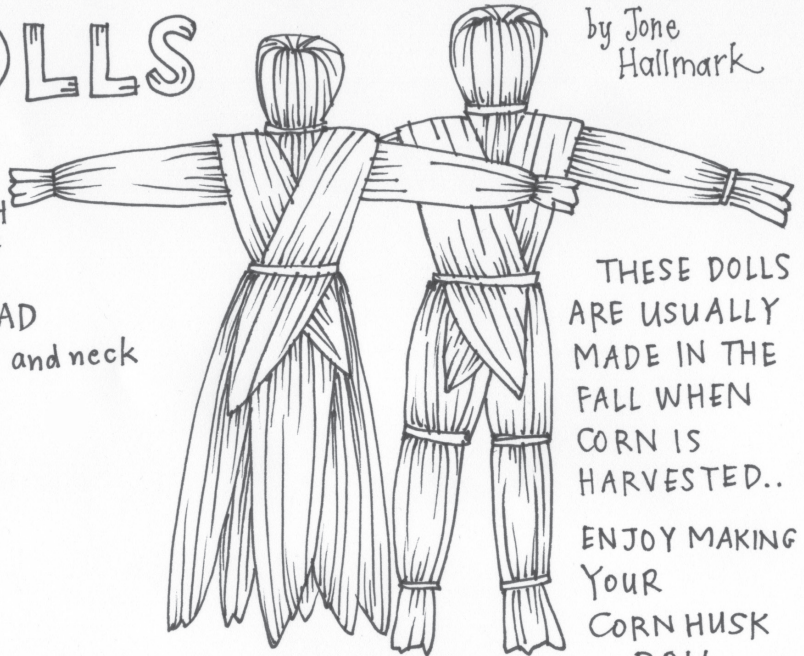 OLLS
by Jone
Hallmark
H
AD
and neck
THESE DOLLS
ARE USUALLY
MADE IN THE
FALL WHEN
CORN IS
HARVESTED..
ENJOY MAKING
YOUR
CORN HUSK